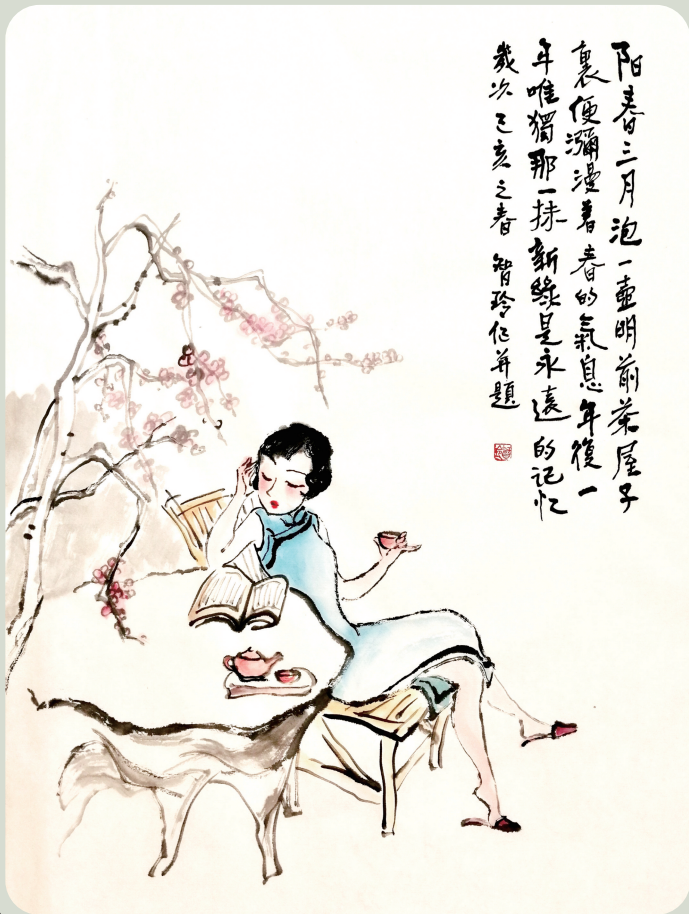 阳春三月泡一壶明前茶屋子
裏便瀰漫著春的氣息年復一
年唯獨那一抹新綠是永遠的记忆
歲次己亥之春 智玲作并題